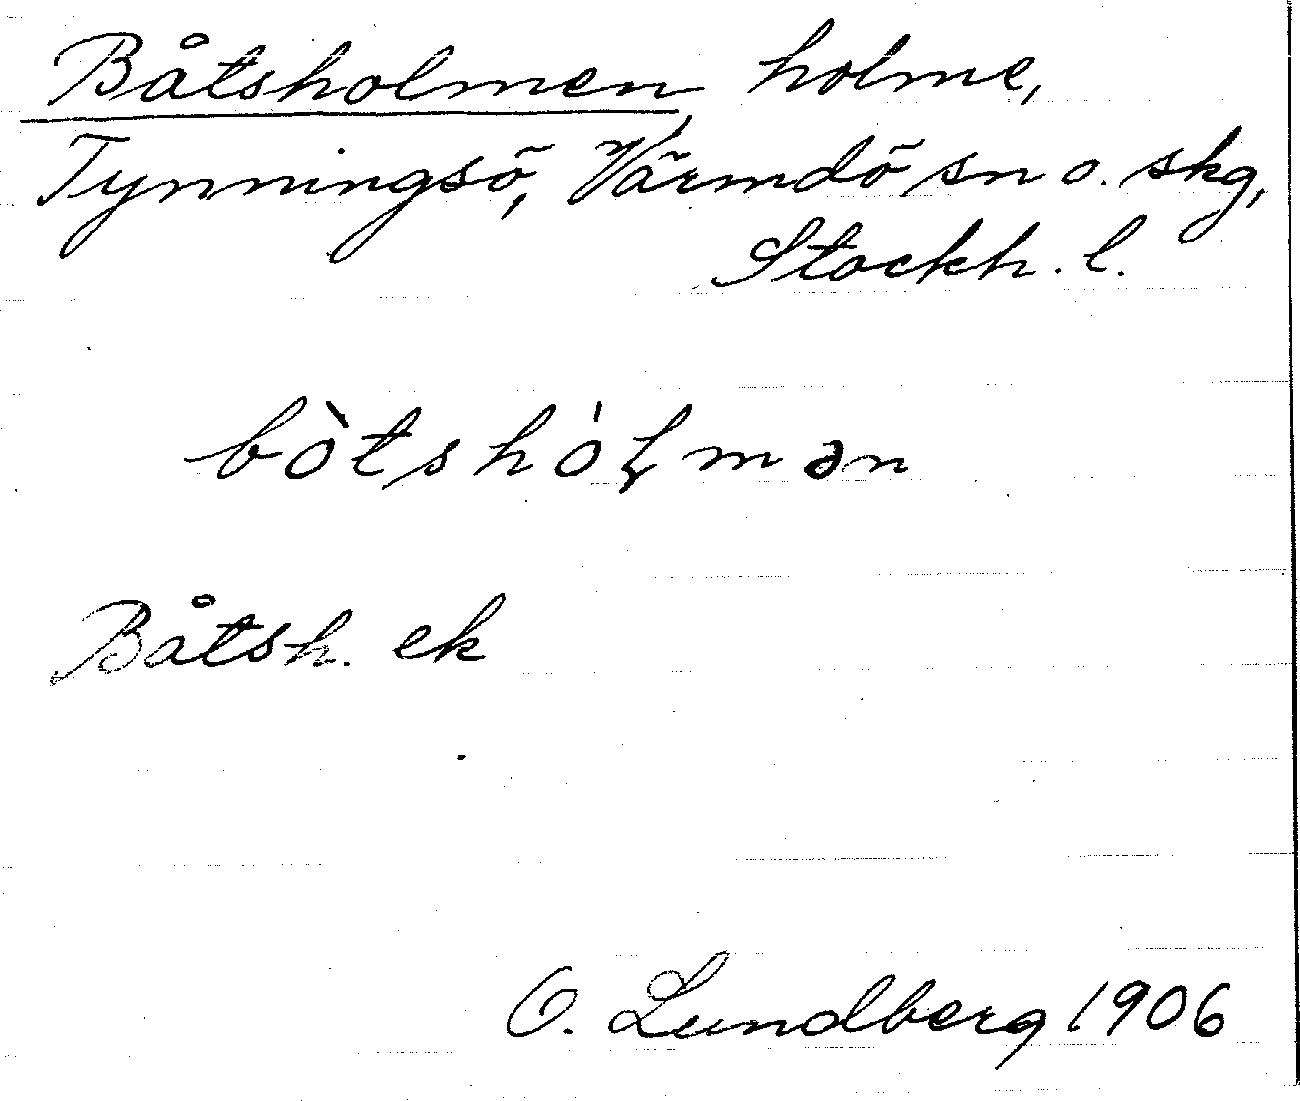 Båtsholmen holme,
Tynningsö, Värmdö sn o. skg,
Stockh. l.
bòtshóɫmən
Båtsh. ek
O. Lundberg 1906